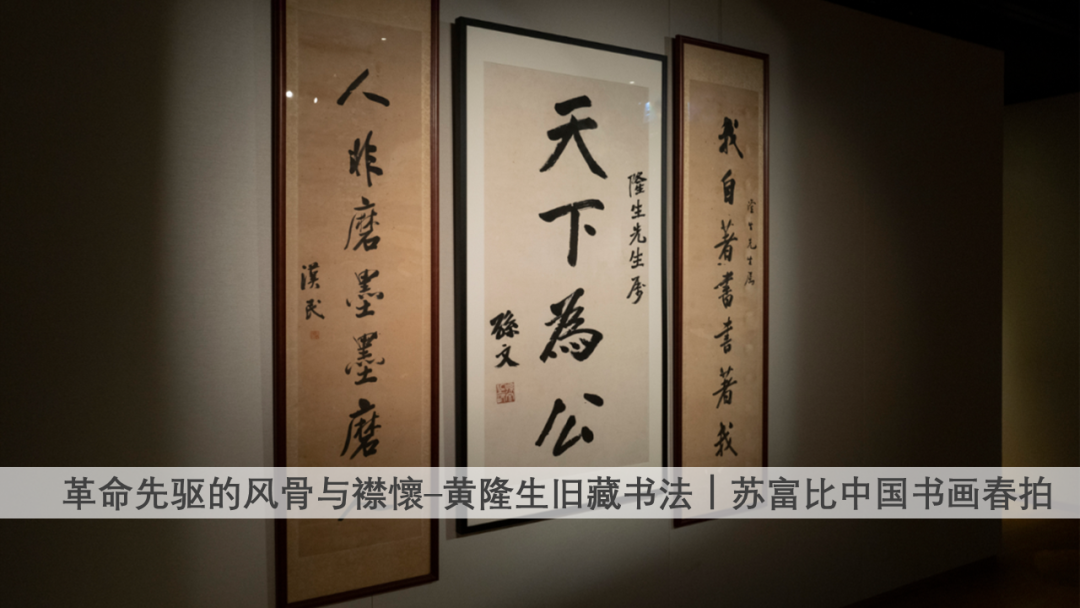 隆生先生属
我自著書書著我
隆生先生属
天下為公
孫文
人非磨墨墨磨
漢民
革命先驱的风骨与襟懷–黄隆生旧藏书法｜苏富比中国书画春拍